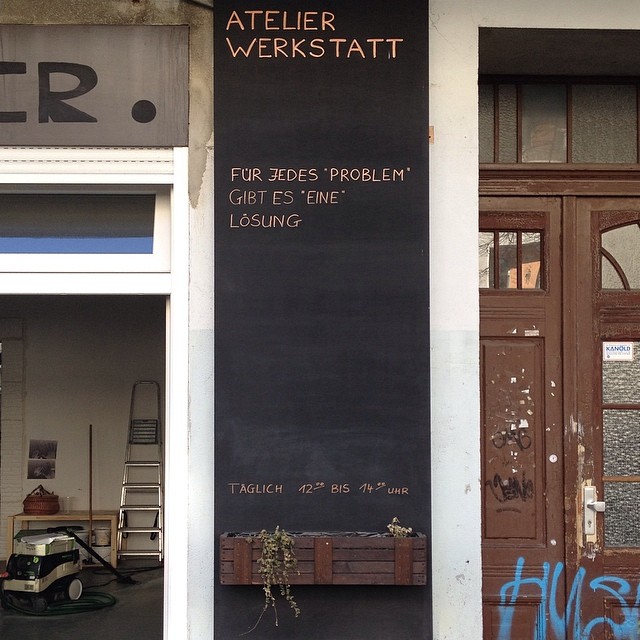 ATELIER
WERKSTATT
FÜR JEDES "PROBLEM"
GIBT ES "EINE"
LÖSUNG
TÄGLICH 12⁰⁰ BIS 14⁰⁰ UHR
ER.
KANOLD
HUS